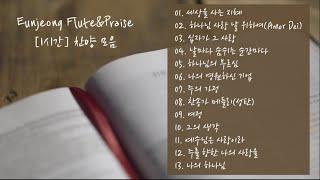 Eunjeong Flute&Praise
[1시간] 찬양 모음
01. 세상을 사는 지혜
02. 하나님 사랑 날 위하여(Amor Dei)
03. 십자가 그 사랑
04. 날마다 숨쉬는 순간마다
05. 하나님의 부르심
06. 나의 영원하신 기업
07. 주의 가정
08. 찬송가 메들리(성탄)
09. 여정
10. 그의 생각
11. 예수님은 사랑이라
12. 주를 향한 나의 사랑을
13. 나의 하나님